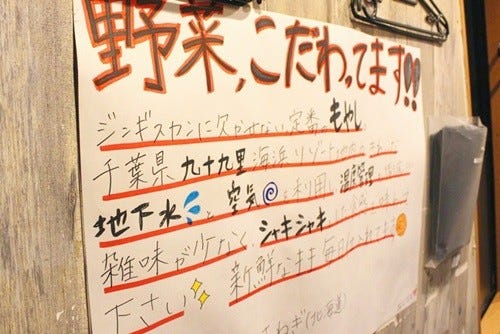 野菜、こだわってます!!
ジンギスカンに欠かせない定番の もやし
千葉県 九十九里 海浜リゾート地の
地下水 と 空気 を利用し 温度管理
雑味が少なく シャキシャキ
新鮮なまま毎日仕入れて
下さい
ねぎ(北海道)